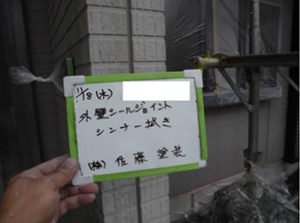 11/8(木)
外壁シールジョイント
シンナー拭き
(株) 佐藤塗装